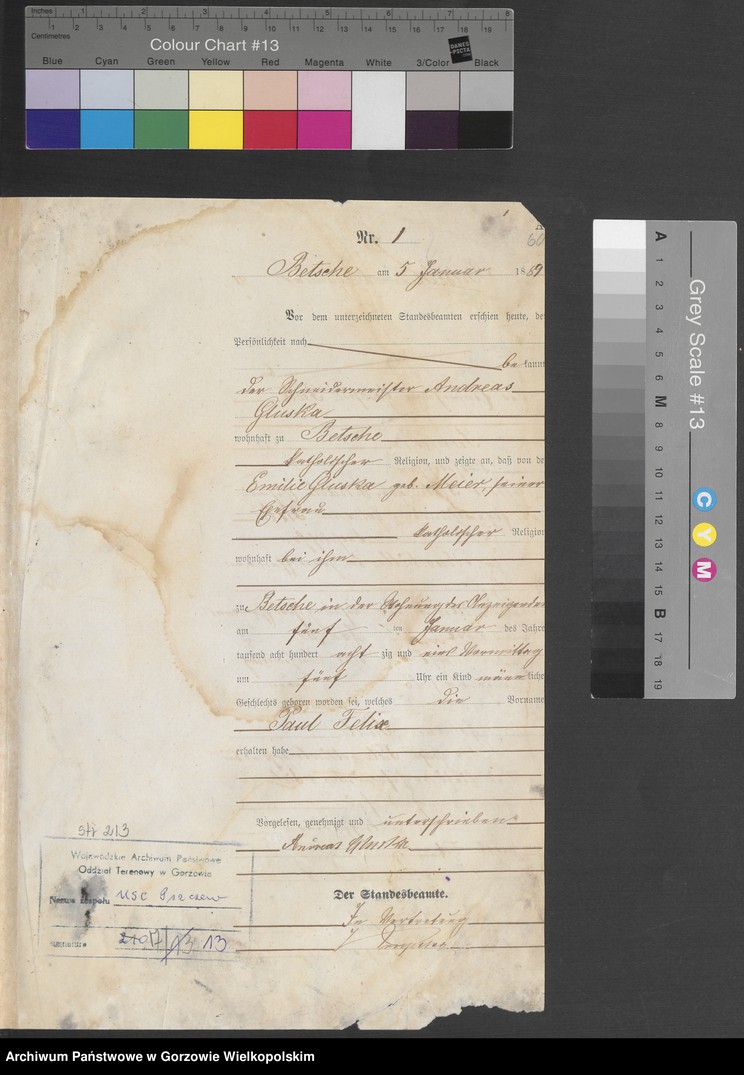 Inches 1 2 3 4 5 6 7 8
Centimetres 1 2 3 4 5 6 7 8 9 10 11 12 13 14 15 16 17 18 19
Colour Chart #13
DANES
PICTA
Blue Cyan Green Yellow Red Magenta White 3/Color Black
A 1 2 3 4 5 6 M 8 9 10 11 12 13 14 15 B 17 18 19
Grey Scale #13
C Y M
1
60
Nr. 1
Betsche am 5 Januar 1889
Vor dem unterzeichneten Standesbeamten erschien heute, de
Persönlichkeit nach
bekannt
der Schneidermeister Andreas
Gluska
wohnhaft zu Betsche
katholischer Religion, und zeigte an, daß von de
Emilie Gluska geb. Meier, seiner
Ehefrau
katholischer Religion
wohnhaft bei ihm
zu Betsche in der Wohnung des Anzeigenden
am fünf ten Januar des Jahre
tausend acht hundert acht zig und Vormittag
um fünf Uhr ein Kind männliche
Geschlechts geboren worden sei, welches die Vorname
Paul Felix
erhalten habe
Vorgelesen, genehmigt und unterschrieben
Andreas Gluska
Der Standesbeamte.
In Vertretung
str 213
Wojewódzkie Archiwum Państwowe
Oddział Terenowy w Gorzowie
Nazwa zespołu USC Pszczew
13
Archiwum Państwowe w Gorzowie Wielkopolskim